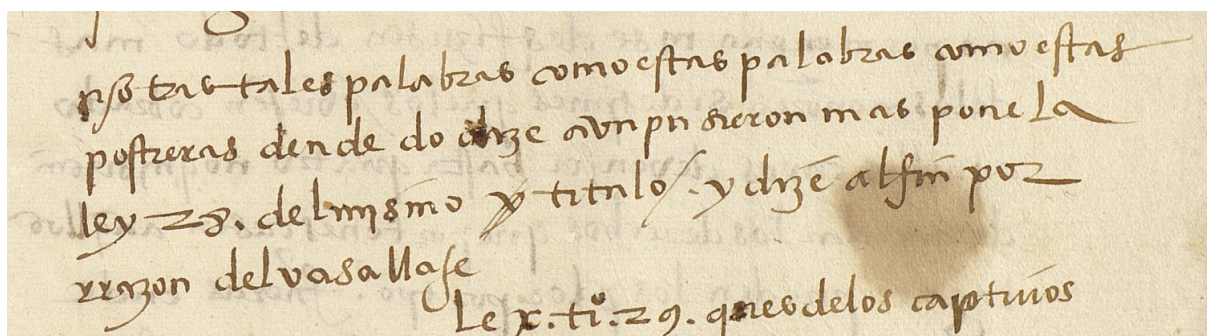 otras tales palabras como estas palabras como estas
postreras dende do dize avn pusieron mas pone la
ley 28. del mismo titulo/. y dizē al fin por
rrazon del vasallaje
Le x. ti.º 29. ques delos captiuos